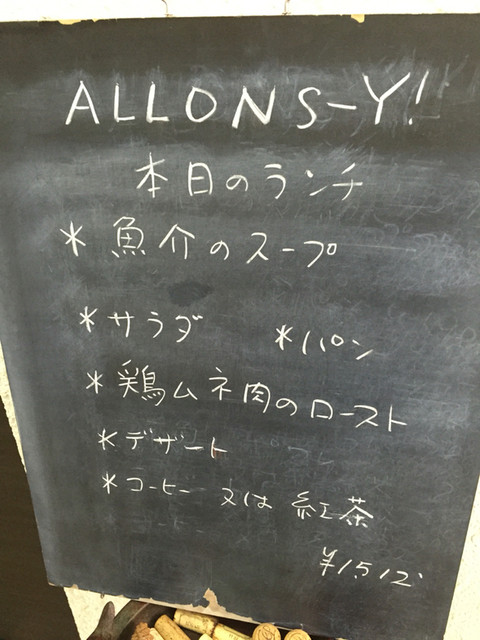 ALLONS-Y!
本日のランチ
* 魚介のスープ
* サラダ * パン
* 鶏ムネ肉のロースト
* デザート
* コーヒー 又は 紅茶
¥1,512